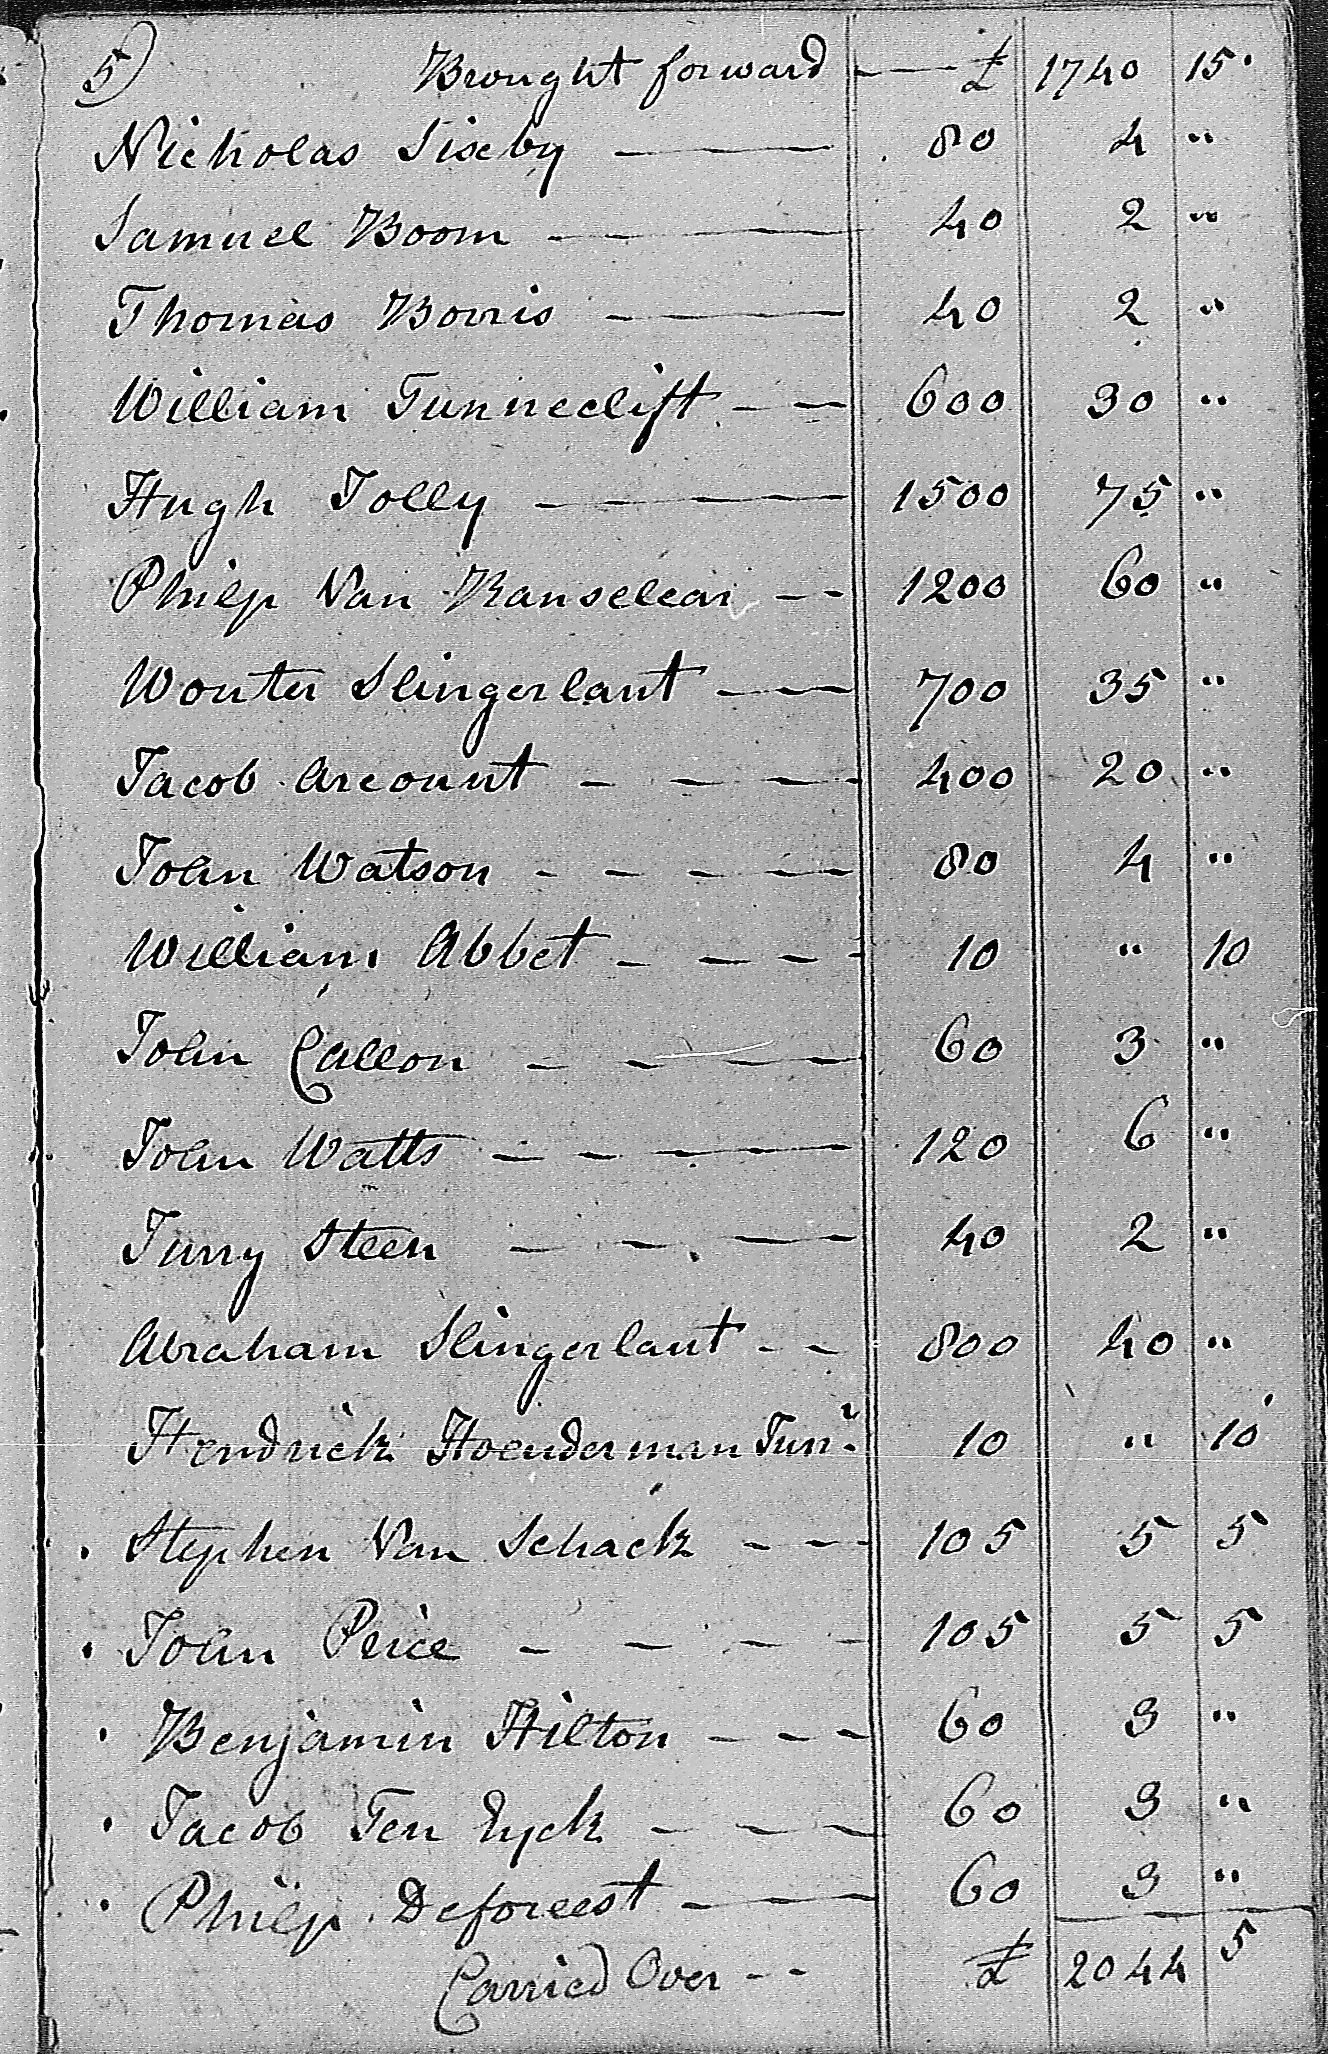 5) Brought forward — £ 1740 15.
Nicholas Sixby — 80 4 "
Samuel Boom — 40 2 "
Thomas Borris — 40 2 "
William Tunneclift — — 600 30 "
Hugh Jolly — 1500 75 "
Philip Van Ranselear — — 1200 60 "
Wouter Slingerlant — — 700 35 "
Jacob Arcount — — — — 400 20 "
John Watson — — — — 80 4 "
William Abbet — — — — 10 " 10
John Callon — — — 60 3 "
John Watts — — — — 120 6 "
Jurry Steen — — — 40 2 "
Abraham Slingerlant — — 800 40 "
Hendrick Hoenderman Junr. 10 " 10
. Stephen Van Schack — — 105 5 5
. John Price — — — — 105 5 5
. Benjamin Hilton — — — 60 3 "
. Jacob Ten Eyck — — — 60 3 "
. Philip Deforeest — — 60 3 "
Carried Over — — £ 2044 5